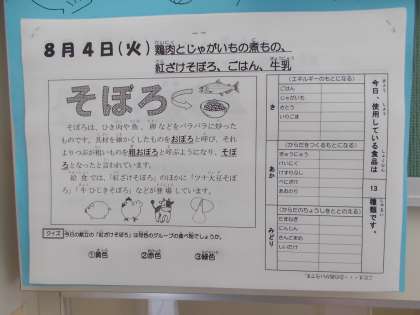 8月4日(火) 鶏肉とじゃがいもの煮もの、
紅ざけそぼろ、ごはん、牛乳
そぼろ
そぼろは、ひき肉や魚、卵などをパラパラに炒った
ものです。具材を細かくしたものをおぼろと呼び、それ
よりつぶが粗いものを粗おぼろと呼ぶようになり、そぼ
ろとなったと言われています。
給食では、「紅ざけそぼろ」のほかに「ツナ大豆そぼ
ろ」「牛ひじきそぼろ」などが登場しています。
クイズ 今日の献立の「紅ざけそぼろ」は何色のグループの食べ物でしょうか。
①黄色 ②赤色 ③緑色
今日、使用している食品は
13
種類です。
き
(エネルギーのもとになる)
ごはん
じゃがいも
さとう
いりごま
あか
(からだをつくるもとになる)
ぎゅうにゅう
けいにく
べにざけ
あおのり
みどり
(からだのちょうしをととのえる)
たまねぎ
にんじん
さやいんげん
しいたけ